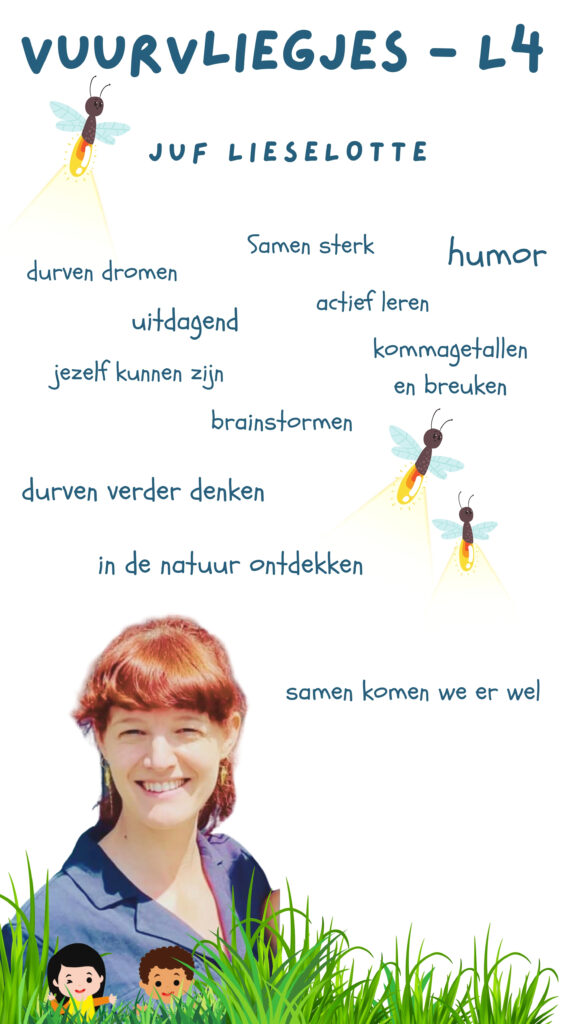 VUURVLIEGJES - L4
JUF LIESELOTTE
Samen sterk
humor
durven dromen
actief leren
uitdagend
kommagetallen
en breuken
jezelf kunnen zijn
brainstormen
durven verder denken
in de natuur ontdekken
samen komen we er wel